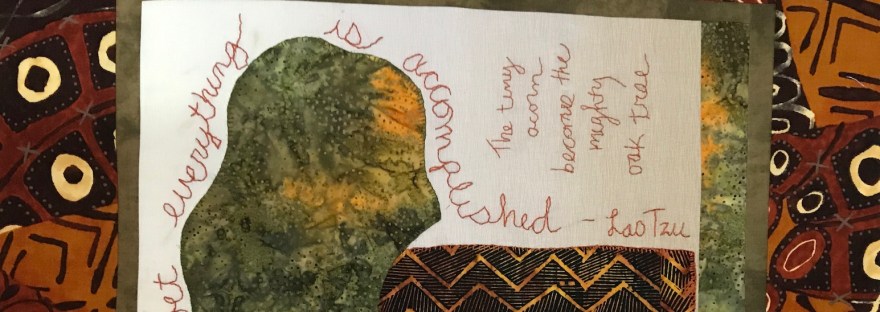 yet everything is accomplished - Lao Tzu
The tiny
acorn
become the
mighty
oak tree